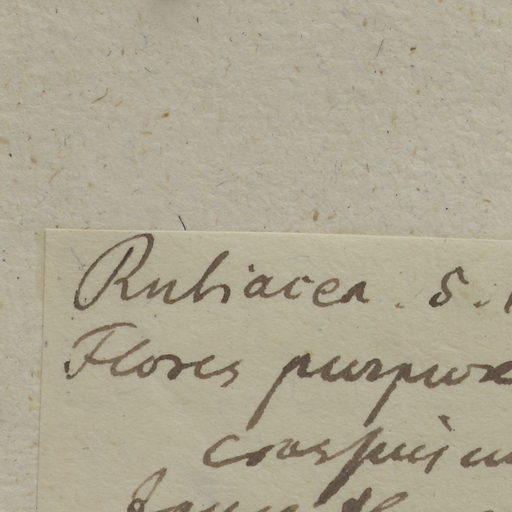 Rubiacea. 5.
Flores purpure
conspicu